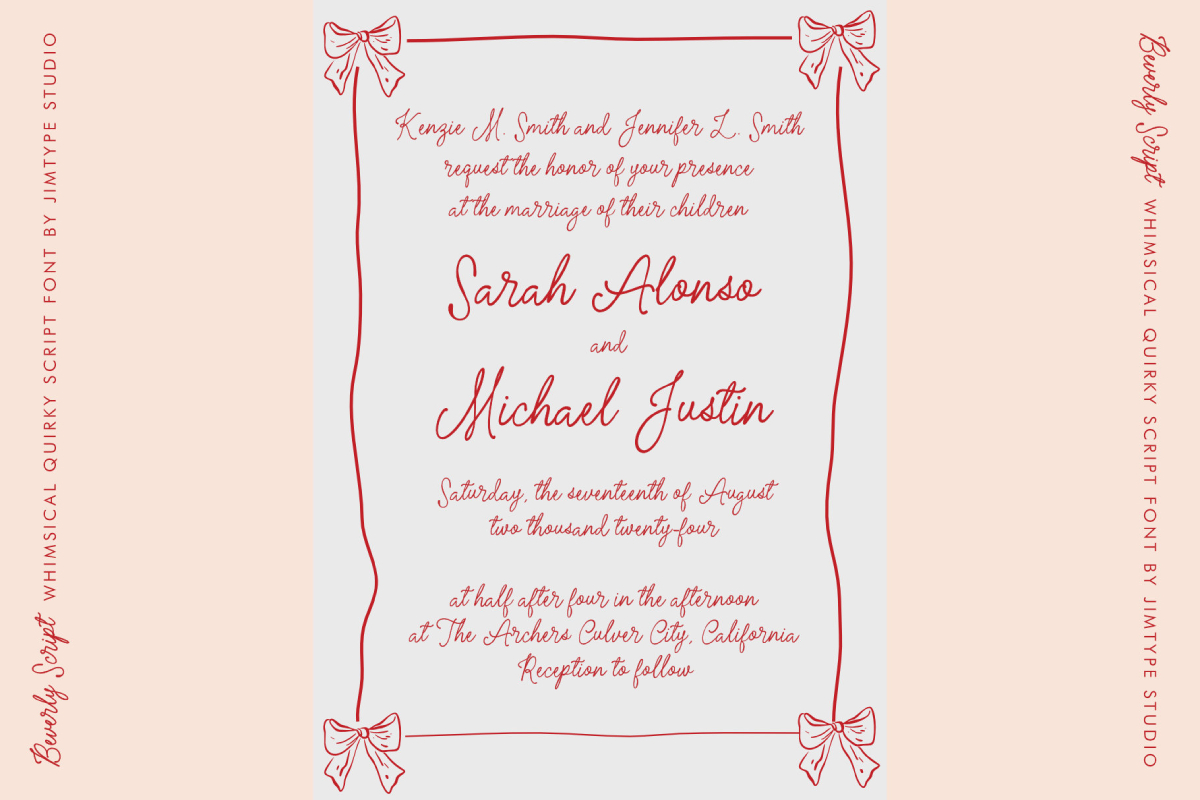 Beverly Script WHIMSICAL QUIRKY SCRIPT FONT BY JIMTYPE STUDIO
Kenzie M. Smith and Jennifer L. Smith
request the honor of your presence
at the marriage of their children
Sarah Alonso
and
Michael Justin
Saturday, the seventeenth of August
two thousand twenty-four
at half after four in the afternoon
at The Archers Culver City, California
Reception to follow
Beverly Script WHIMSICAL QUIRKY SCRIPT FONT BY JIMTYPE STUDIO